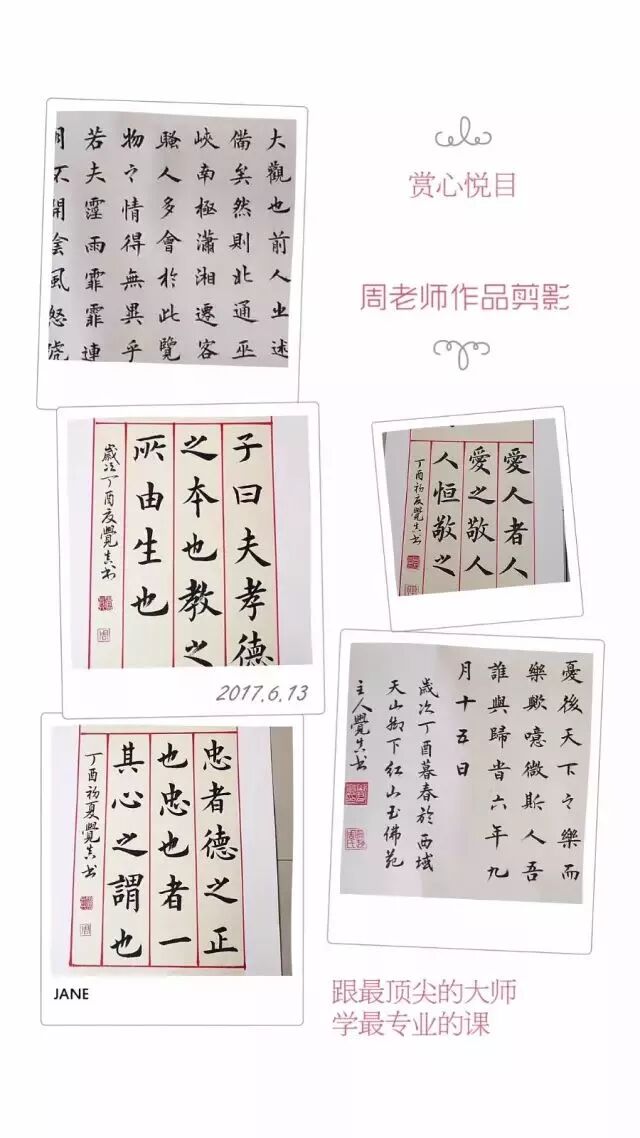 赏心悦目
周老师作品剪影
大觀也前人之述
備矣然則北通巫
峽南極瀟湘遷客
騷人多會於此覽
物之情得無異乎
若夫霪雨霏霏連
月不開陰風怒號
子曰夫孝德
之本也教之
所由生也
歲次丁酉夏覺真书
2017.6.13
愛人者人
愛之敬人
人恒敬之
丁酉初夏覺真书
憂後天下之樂而
樂歟噫微斯人吾
誰與歸眥六年九
月十五日
歲次丁酉暮春於西域
天山脚下红山玉佛苑
主人覺真书
忠者德之正
也忠也者一
其心之謂也
丁酉初夏覺真书
JANE
跟最顶尖的大师
学最专业的课